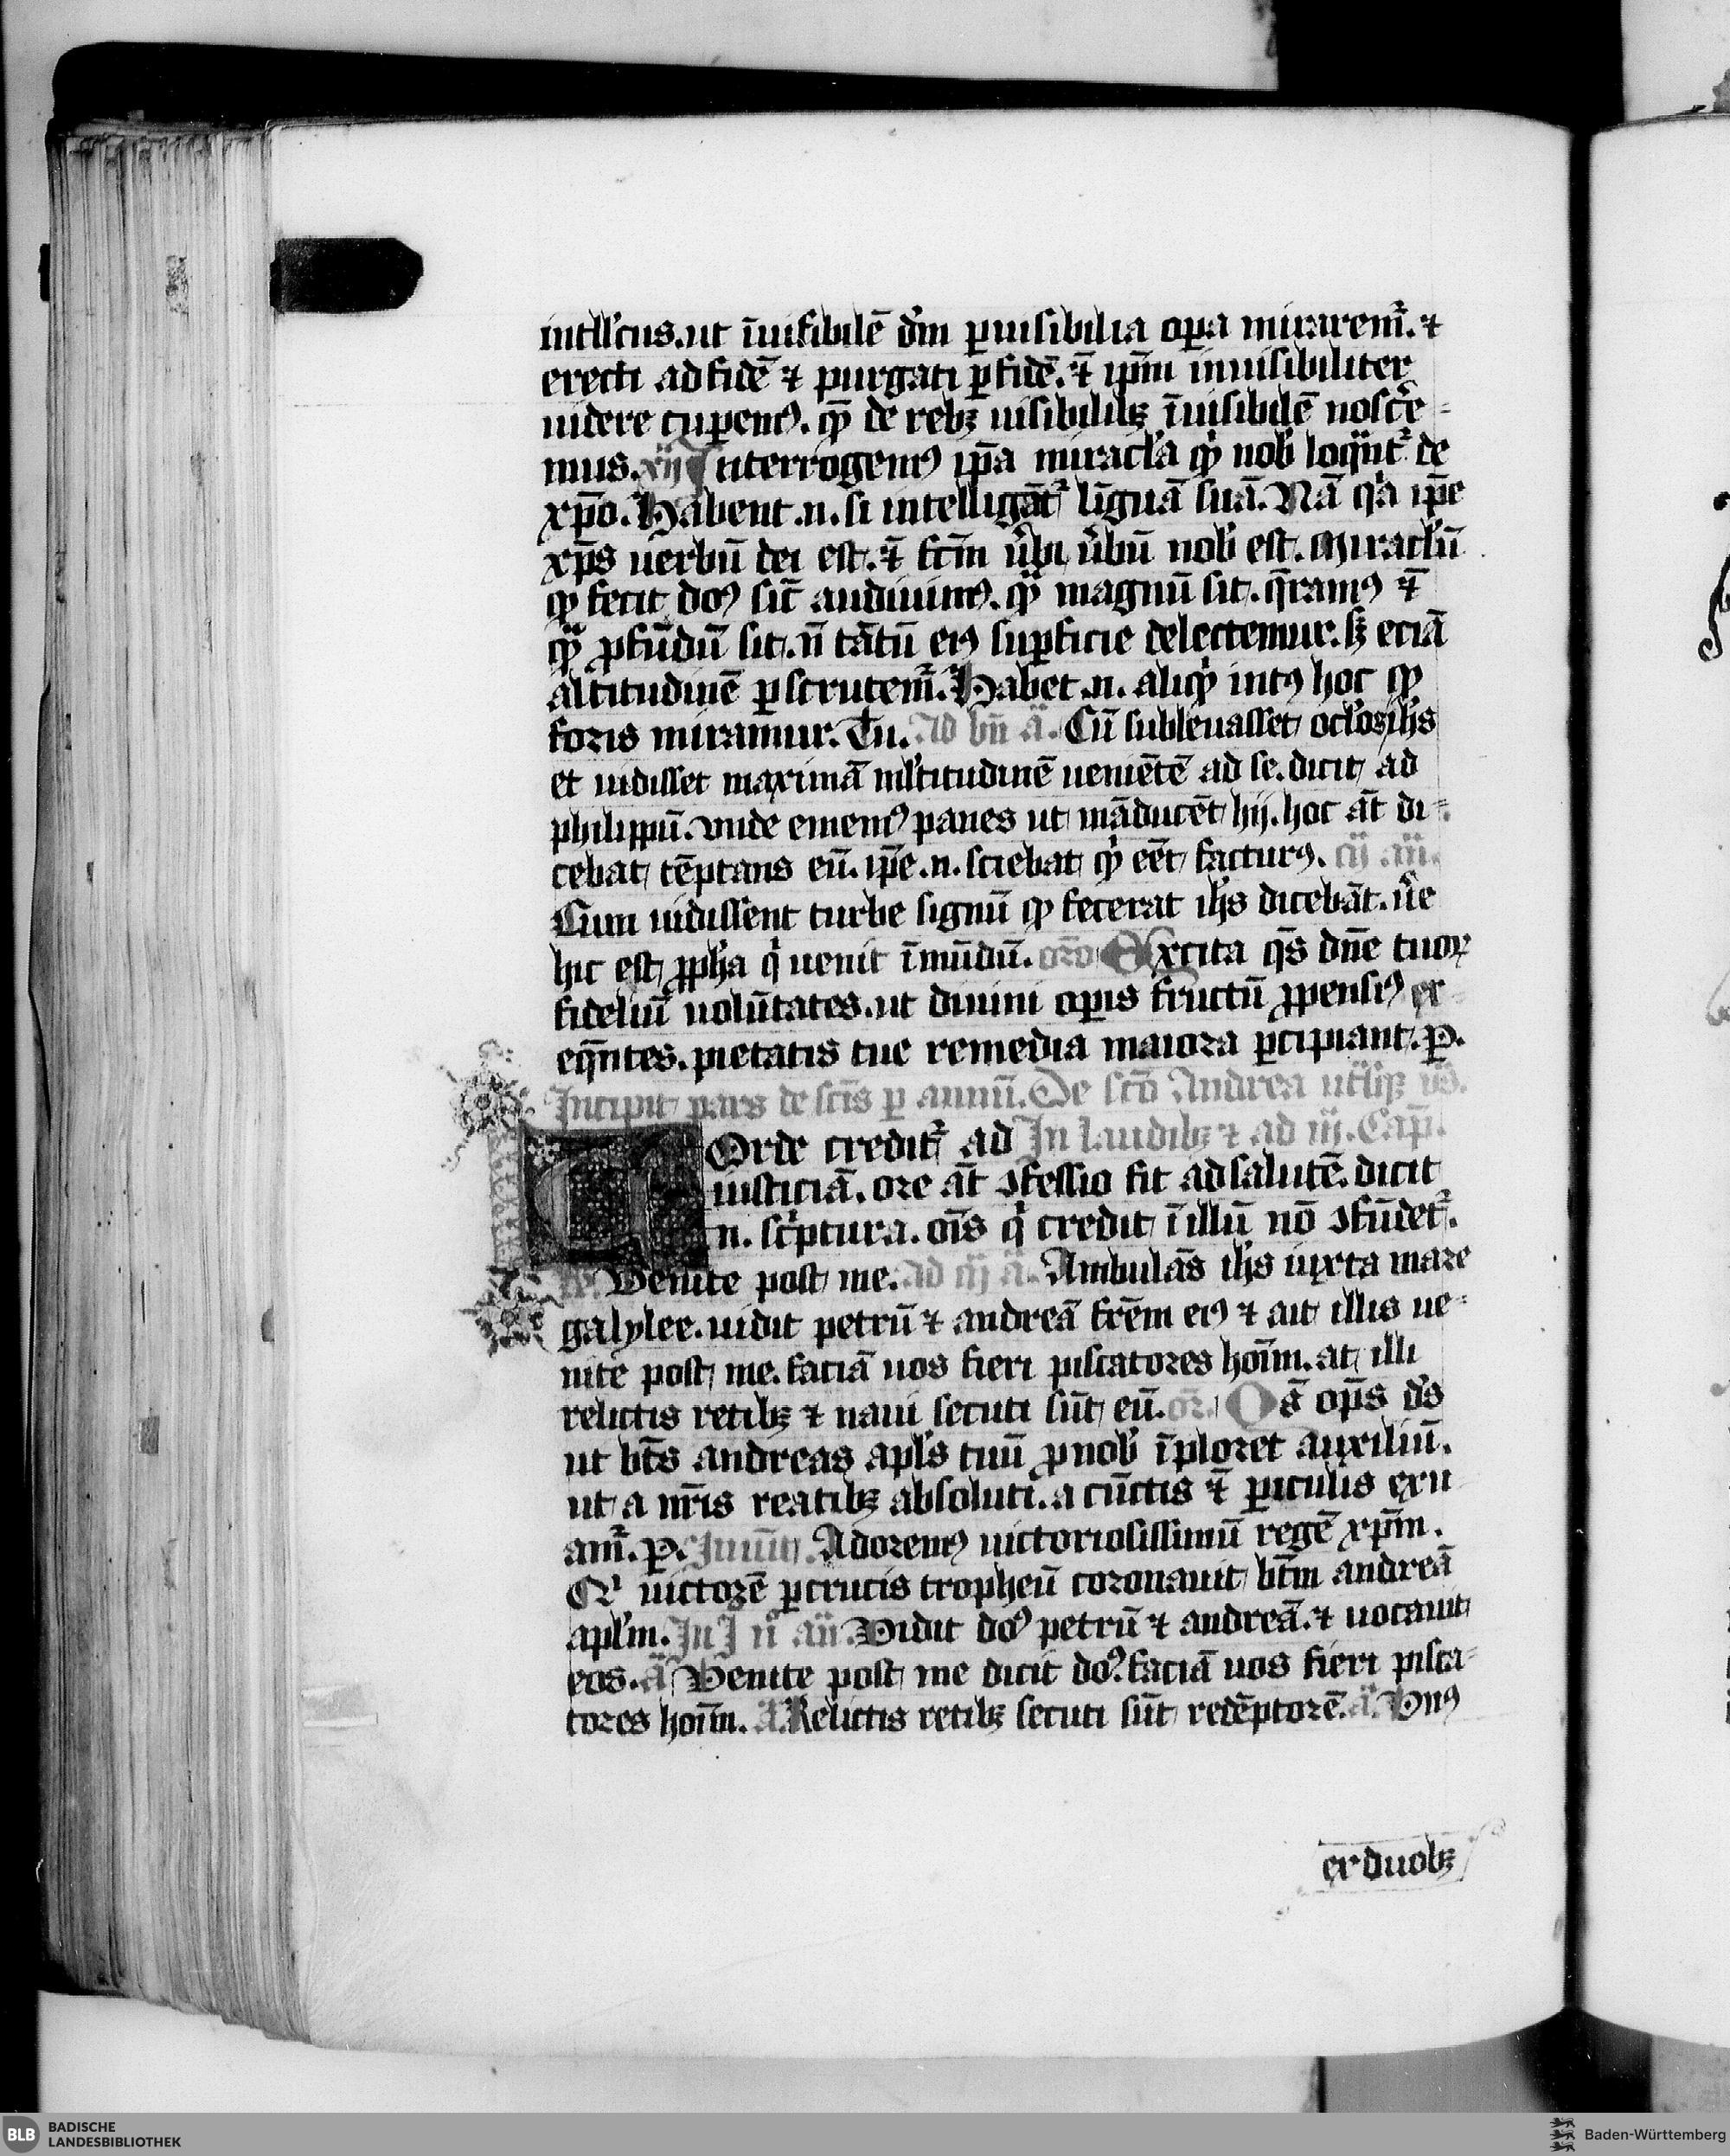 intll'cus. ut īuisibilē dm̄ ꝑ uisibilia oꝑa mirarem᷑. ⁊
erecti ad fidē ⁊ purgati ꝑ fidē. ⁊̄ ip̄m inuisibiliter
uidere cuꝑemꝰ. qͦ de rebꝫ uisibilibꝫ īuisibilē nosce᷑-
mus. xij Interrogemꝰ ip̄a miracl'a qͥd nob̓ loquͣnt᷑ de
xp̄o. Habent .n. si intelligāt᷑ līguā suā. Nā qͥa ip̄e
xp̄s uerbū dei est. ⁊̄ fcm̄ ūbi ūbū nob̓ est. Miracl'ū
qͦ fecit dōꝰ sic̄ audiuimꝰ. qͣ magnū sit. q̄ramꝰ ⁊̄
qͣ ꝓfūdū sit. n̄ tātū eiꝰ suꝑficie delectemur. sꝫ eciā
altitudinē ꝑscrutem᷑. Habet .n. aliqͥd intꝰ hoc qͦ
foris miramur. Tu. Ad bn̄ ā. Cū subleuasset ocl'os ihs
et uidisset maximā ml'titudinē ueniētē ad se. dicit ad
philippū. vnde ememꝰ panes ut māducēt hij. hoc āt di-
cebat tēptans eū. ip̄e .n. sciebat qͥd eēt facturꝰ. Cij an̄.
Cum uidissent turbe signū qͦ fecerat ihs dicebāt. ūe
hic est ꝓph̄a qͥ uenit ī mūdū. or̄o Excita q̄s dn̄e tuoꝝ
fideliū uolūtates. ut diuini oꝑis fructū ꝓpensiꝰ ex-
eq̄ntes. pietatis tue remedia maiora ꝑcipiant. P.
Incipit pars de scīs ꝑ annū. De sctō Andrea utl'isqꝫ us̄.
COrde credit᷑ ad In laudibꝫ ⁊ ad iij. Cap̄.
iusticiā. ore āt ꝯfessio fit ad salutē. dicit
.n. scͥptura. oīs qͥ credit ī illū nō ꝯfūdet᷑.
R. Venite post me. ad iij ā. Ambulās ihs iuxta mare
galylee. uidit petrū ⁊ andreā frēm eiꝰ ⁊ ait illis ue-
nite post me. faciā uos fieri piscatores hoīm. at illi
relictis retibꝫ ⁊ naui secuti sūt eū. or̄. Oc̄ op̄s d's
ut bt̄s andreas apl's tuū ꝓ nob̓ īploret auxiliū.
ut a nr̄is reatibꝫ absoluti. a cūctis ⁊̄ ꝑiculis exu
am᷑. P. Inuit̄. Adoremꝰ uictoriosissimū regē xp̄m.
Qͥ uictorē ꝑ crucis tropheū coronauit bt̄m andreā
apl'm. In I n̄ an̄. Vidit doꝰ petrū ⁊ andreā. ⁊ uocauit
eos. ā Venite post me dicit doꝰ. faciā uos fieri pisca-
tores hoīm. ā. Relictis retibꝫ secuti sūt redēptorē. ā. Vnꝰ
ex duobꝫ
BLB BADISCHE
LANDESBIBLIOTHEK
Baden-Württemberg